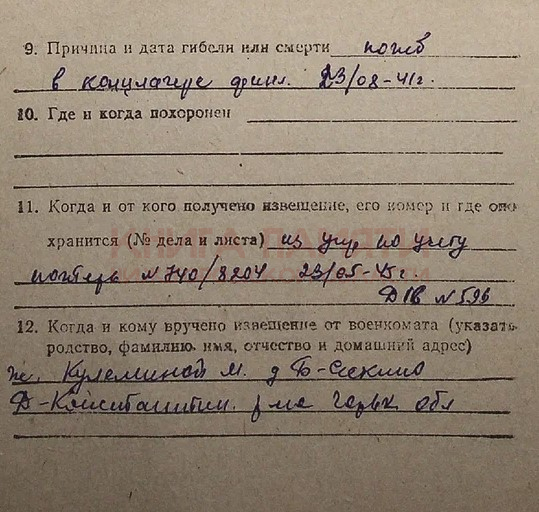 9. Причина и дата гибели или смерти погиб
в концлагере финл. 23/08-41г.
10. Где и когда похоронен
11. Когда и от кого получено извещение, его номер и где оно
хранится (№ дела и листа) из упр по учету
потерь №740/8204 23/05-45г.
Д 1в №596
12. Когда и кому вручено извещение от военкомата (указать
родство, фамилию, имя, отчество и домашний адрес)
ж. Кулеминой М. д Б-
Д-Константин. р на Горьк. обл
КНИГА ПАМЯТИ